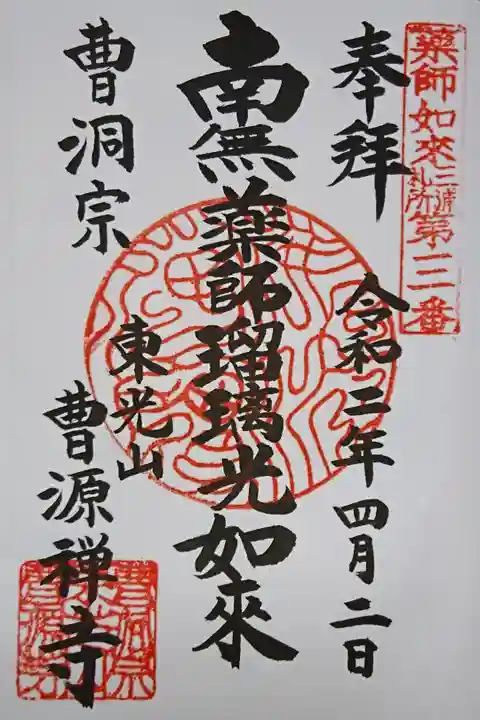 薬師如来三浦札所第三番
奉拝
令和二年四月二日
南無薬師瑠璃光如來
東光山
曹洞宗
曹源禅寺